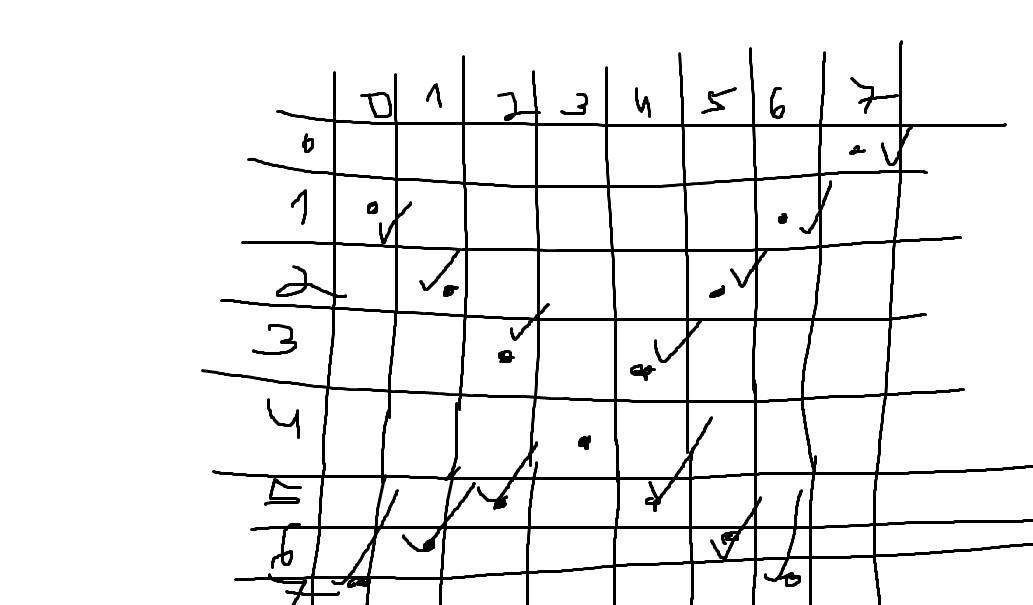 0 1 2 3 4 5 6 7
0
1
2
3
4
5
6
7